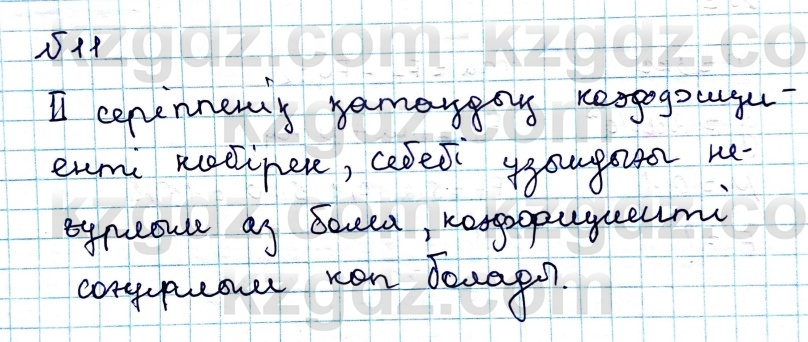 №11
II серіппенің қатаңдық коэффици-
енті көбірек, себебі ұзындығы не-
ғұрлым аз болса, коэффициенті
соғұрлым көп болады.
kzgdz.com kzgdz.com